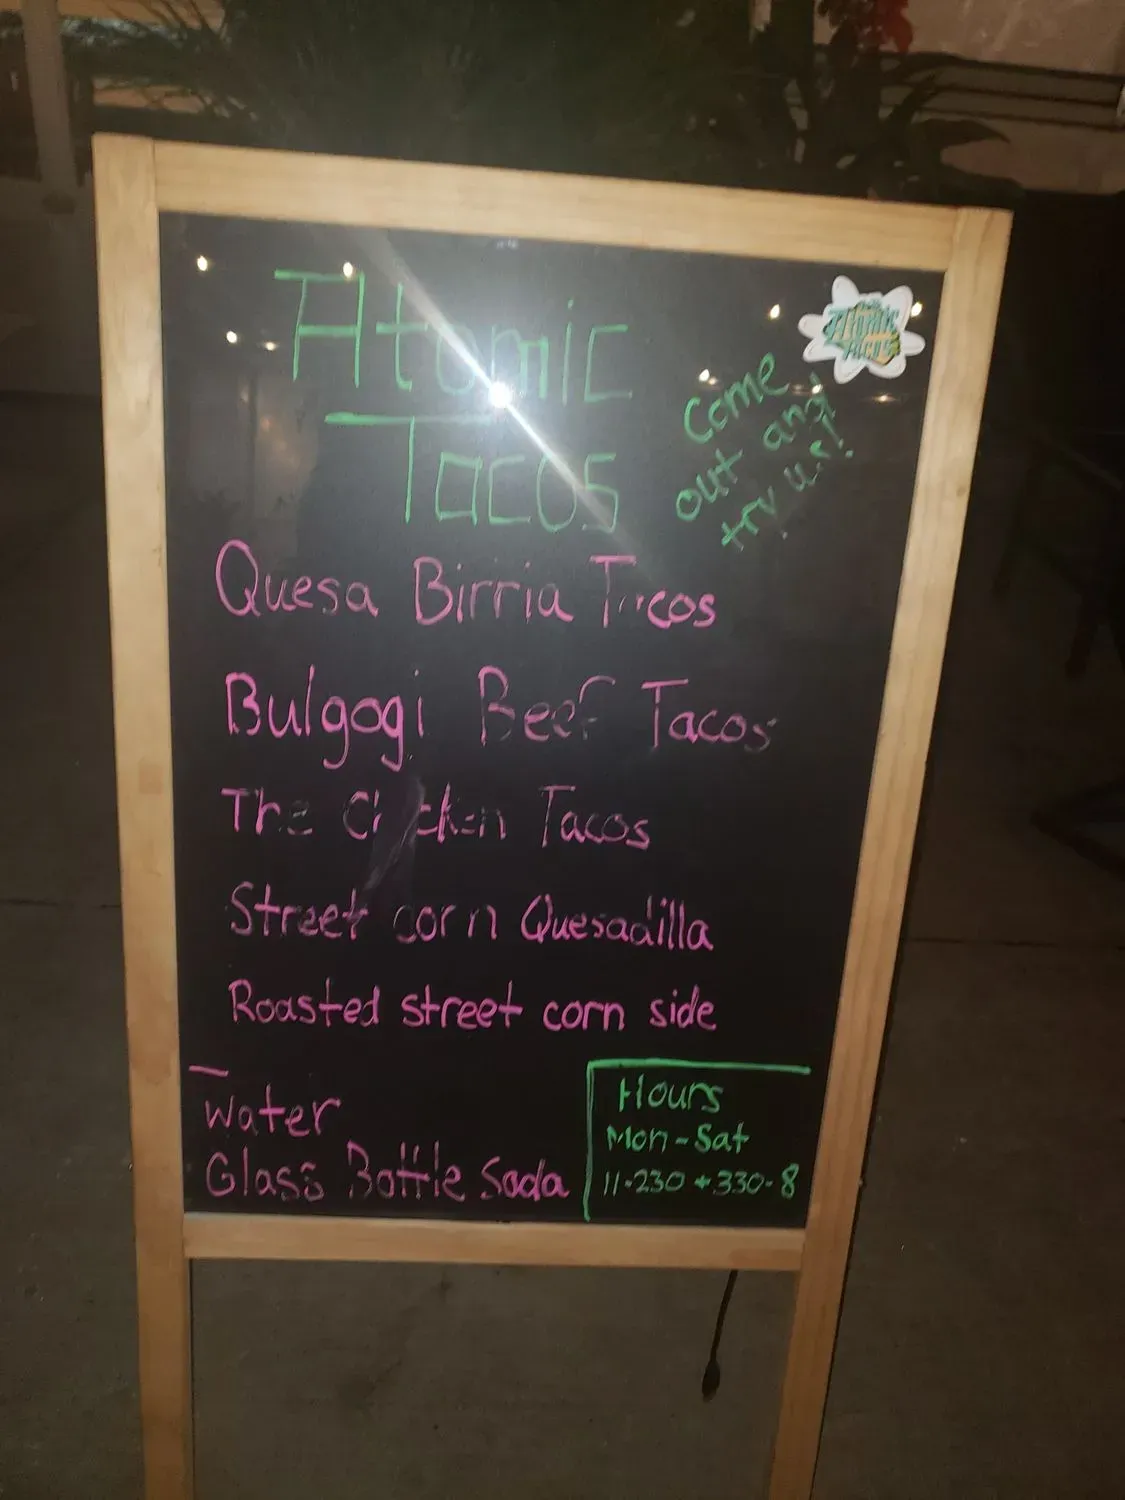 Atomic
Tacos
come
out and
try us!
Atomic
Tacos
Quesa Birria Tacos
Bulgogi Beef Tacos
The Chicken Tacos
Street corn Quesadilla
Roasted street corn side
Water
Glass Bottle Soda
Hours
Mon-Sat
11-230 + 330-8